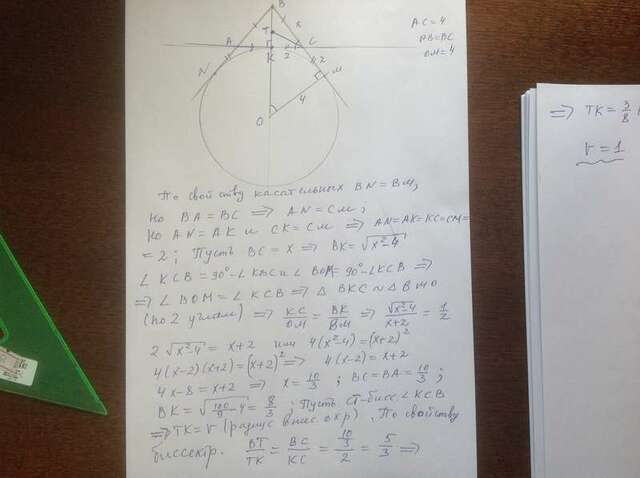 B
T
A
K
C
2
2
N
M
K
4
O
AC=4
AB=BC
OM=4
По свойству касательных BN=BM,
но BA=BC ⇒ AN=CM;
но AN=AK и CK=CM ⇒ AN=AK=KC=CM=
=2; Пусть BC=x ⇒ BK=√x²-4
∠KCB=90°-∠KBC и ∠BOM=90°-∠KCB ⇒
⇒ ∠BOM=∠KCB ⇒ △BKC∾△BMO
(по 2 углам) ⇒ KC/OM = BK/BM ⇒ √x²-4/x+2 = 1/2
2√x²-4 = x+2 или 4(x²-4)=(x+2)²
4(x-2)(x+2)=(x+2)² ⇒ 4(x-2)=x+2
4x-8=x+2 ⇒ x=10/3; BC=BA=10/3;
BK=√100/9-4=8/3; Пусть CT-бисс. ∠KCB
⇒ TK=r (радиус впис. окр). По свойству
биссектр. BT/TK = BC/KC = 10/3/2 = 5/3 ⇒
⇒ TK=3/8
r=1